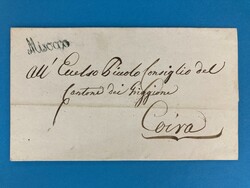 Misocco
All' Eccelso Picolo Consiglio del
Cantone dei Griggione
Coira